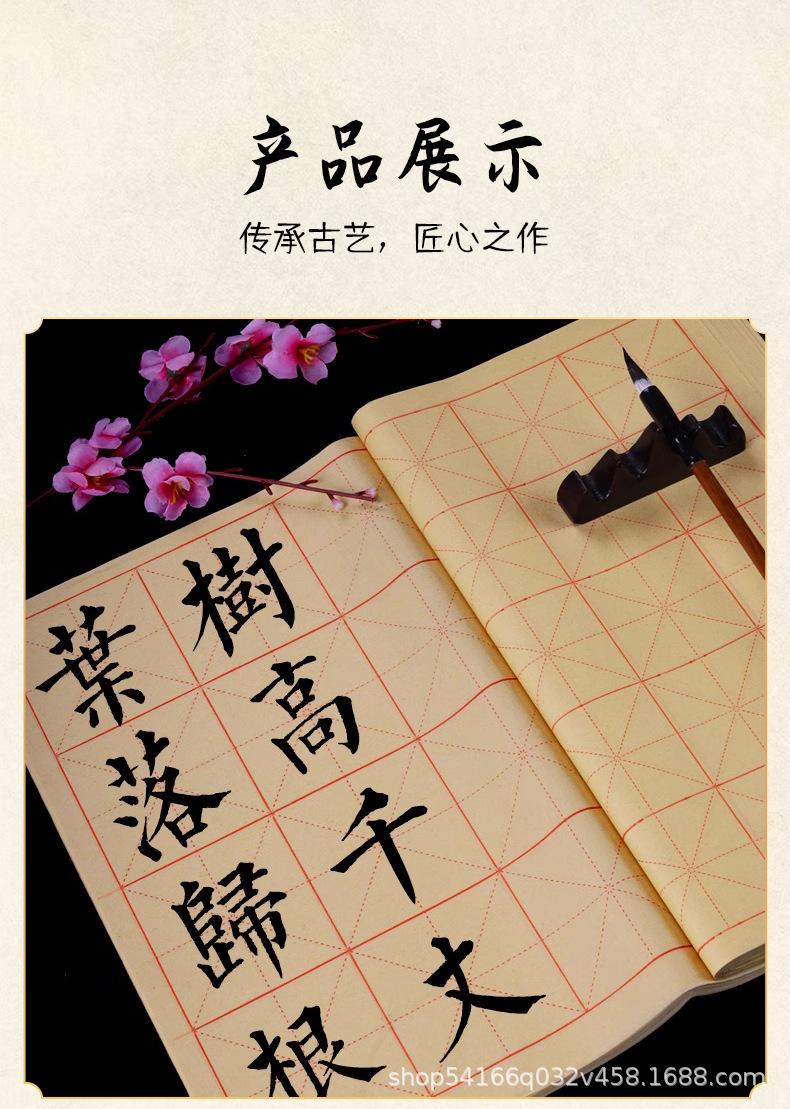 产品展示
传承古艺，匠心之作
樹高千丈
葉落歸根
shop54166q032v458.1688.com